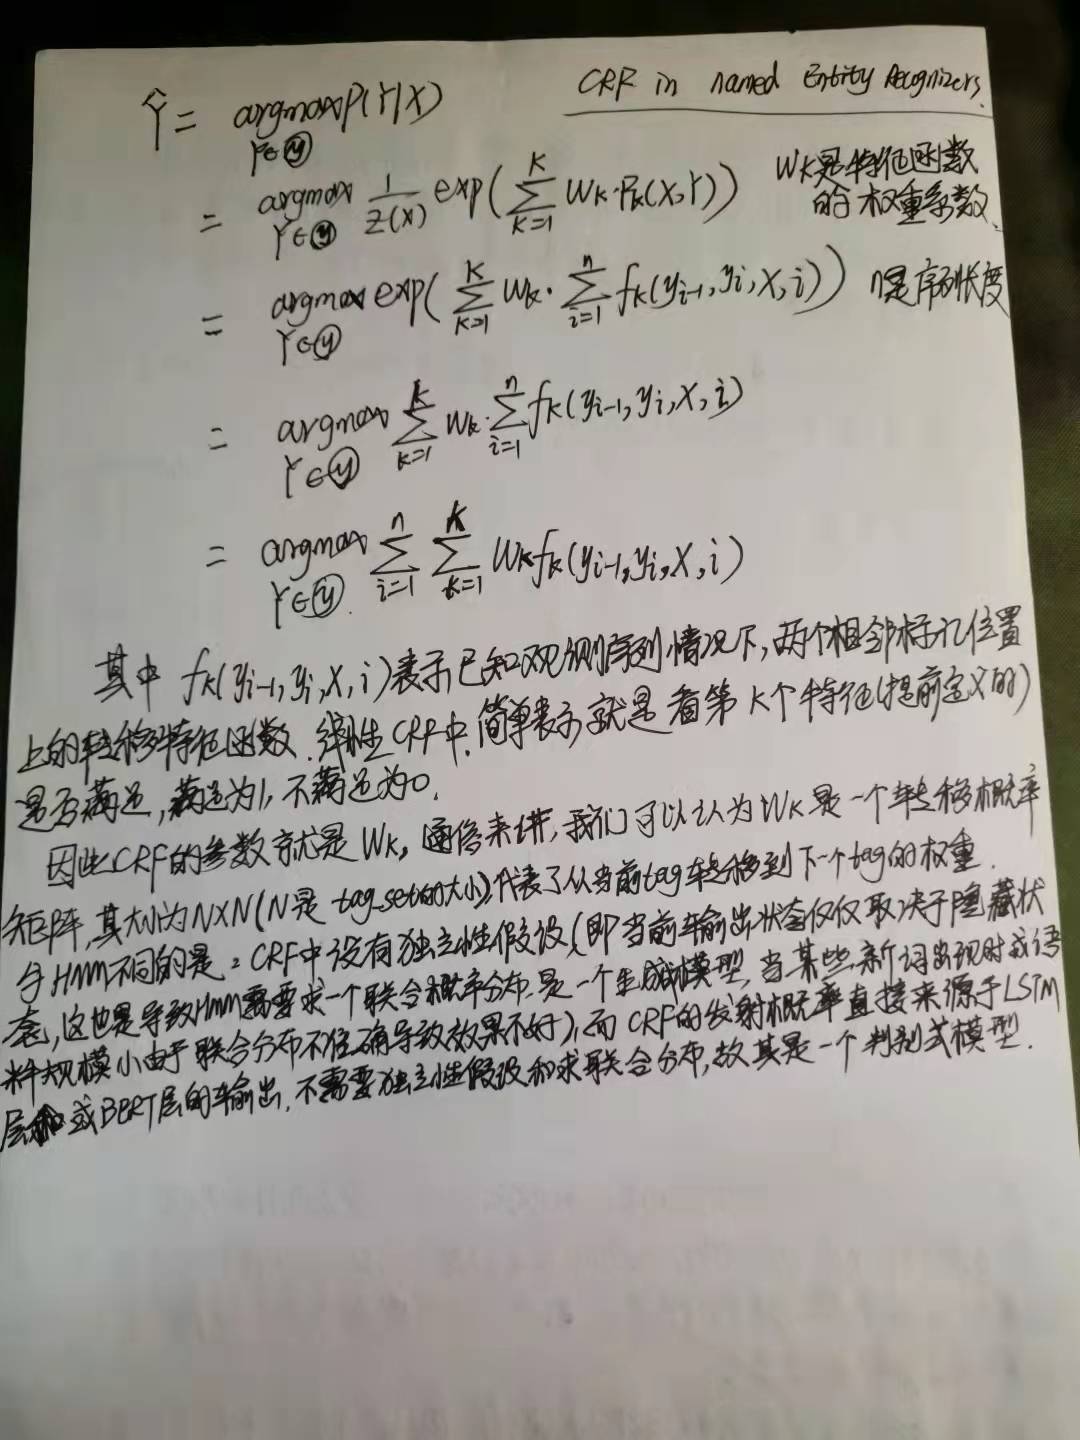 CRF in named Entity Recognizers.
Ŷ = argmax P(Y|X)
Y∈Ⓨ
= argmax 1/Z(X) exp(∑ₖ₌₁ᴷ Wₖ·Fₖ(X,Y)) Wₖ是特征函数
Y∈Ⓨ 的权重系数.
= argmax exp(∑ₖ₌₁ᴷ Wₖ·∑ᵢ₌₁ⁿ fₖ(yᵢ₋₁,yᵢ,X,i)) n是序列长度
Y∈Ⓨ
= argmax ∑ₖ₌₁ᴷ Wₖ·∑ᵢ₌₁ⁿ fₖ(yᵢ₋₁,yᵢ,X,i)
Y∈Ⓨ
= argmax ∑ᵢ₌₁ⁿ ∑ₖ₌₁ᴷ Wₖfₖ(yᵢ₋₁,yᵢ,X,i)
Y∈Ⓨ.
其中 fₖ(yᵢ₋₁,yᵢ,X,i)表示已知观测序列情况下,两个相邻标记位置
上的转移特征函数.线性CRF中,简单表示就是看第K个特征(提前定义的)
是否满足,满足为1,不满足为0.
因此CRF的参数就是Wₖ,通俗来讲,我们可以认为Wₖ是一个转移概率
矩阵,其大小为N×N(N是tag_set的大小),代表了从当前tag转移到下一个tag的权重.
与HMM不同的是:CRF中没有独立性假设,(即当前输出状态仅仅取决于隐藏状
态,这也是导致HMM需要求一个联合概率分布.是一个生成模型,当某些新词出现时或语
料规模小由于联合分布不准确导致效果不好),而CRF的发射概率直接来源于LSTM
层 或BERT层的输出,不需要独立性假设和求联合分布,故其是一个判别式模型.